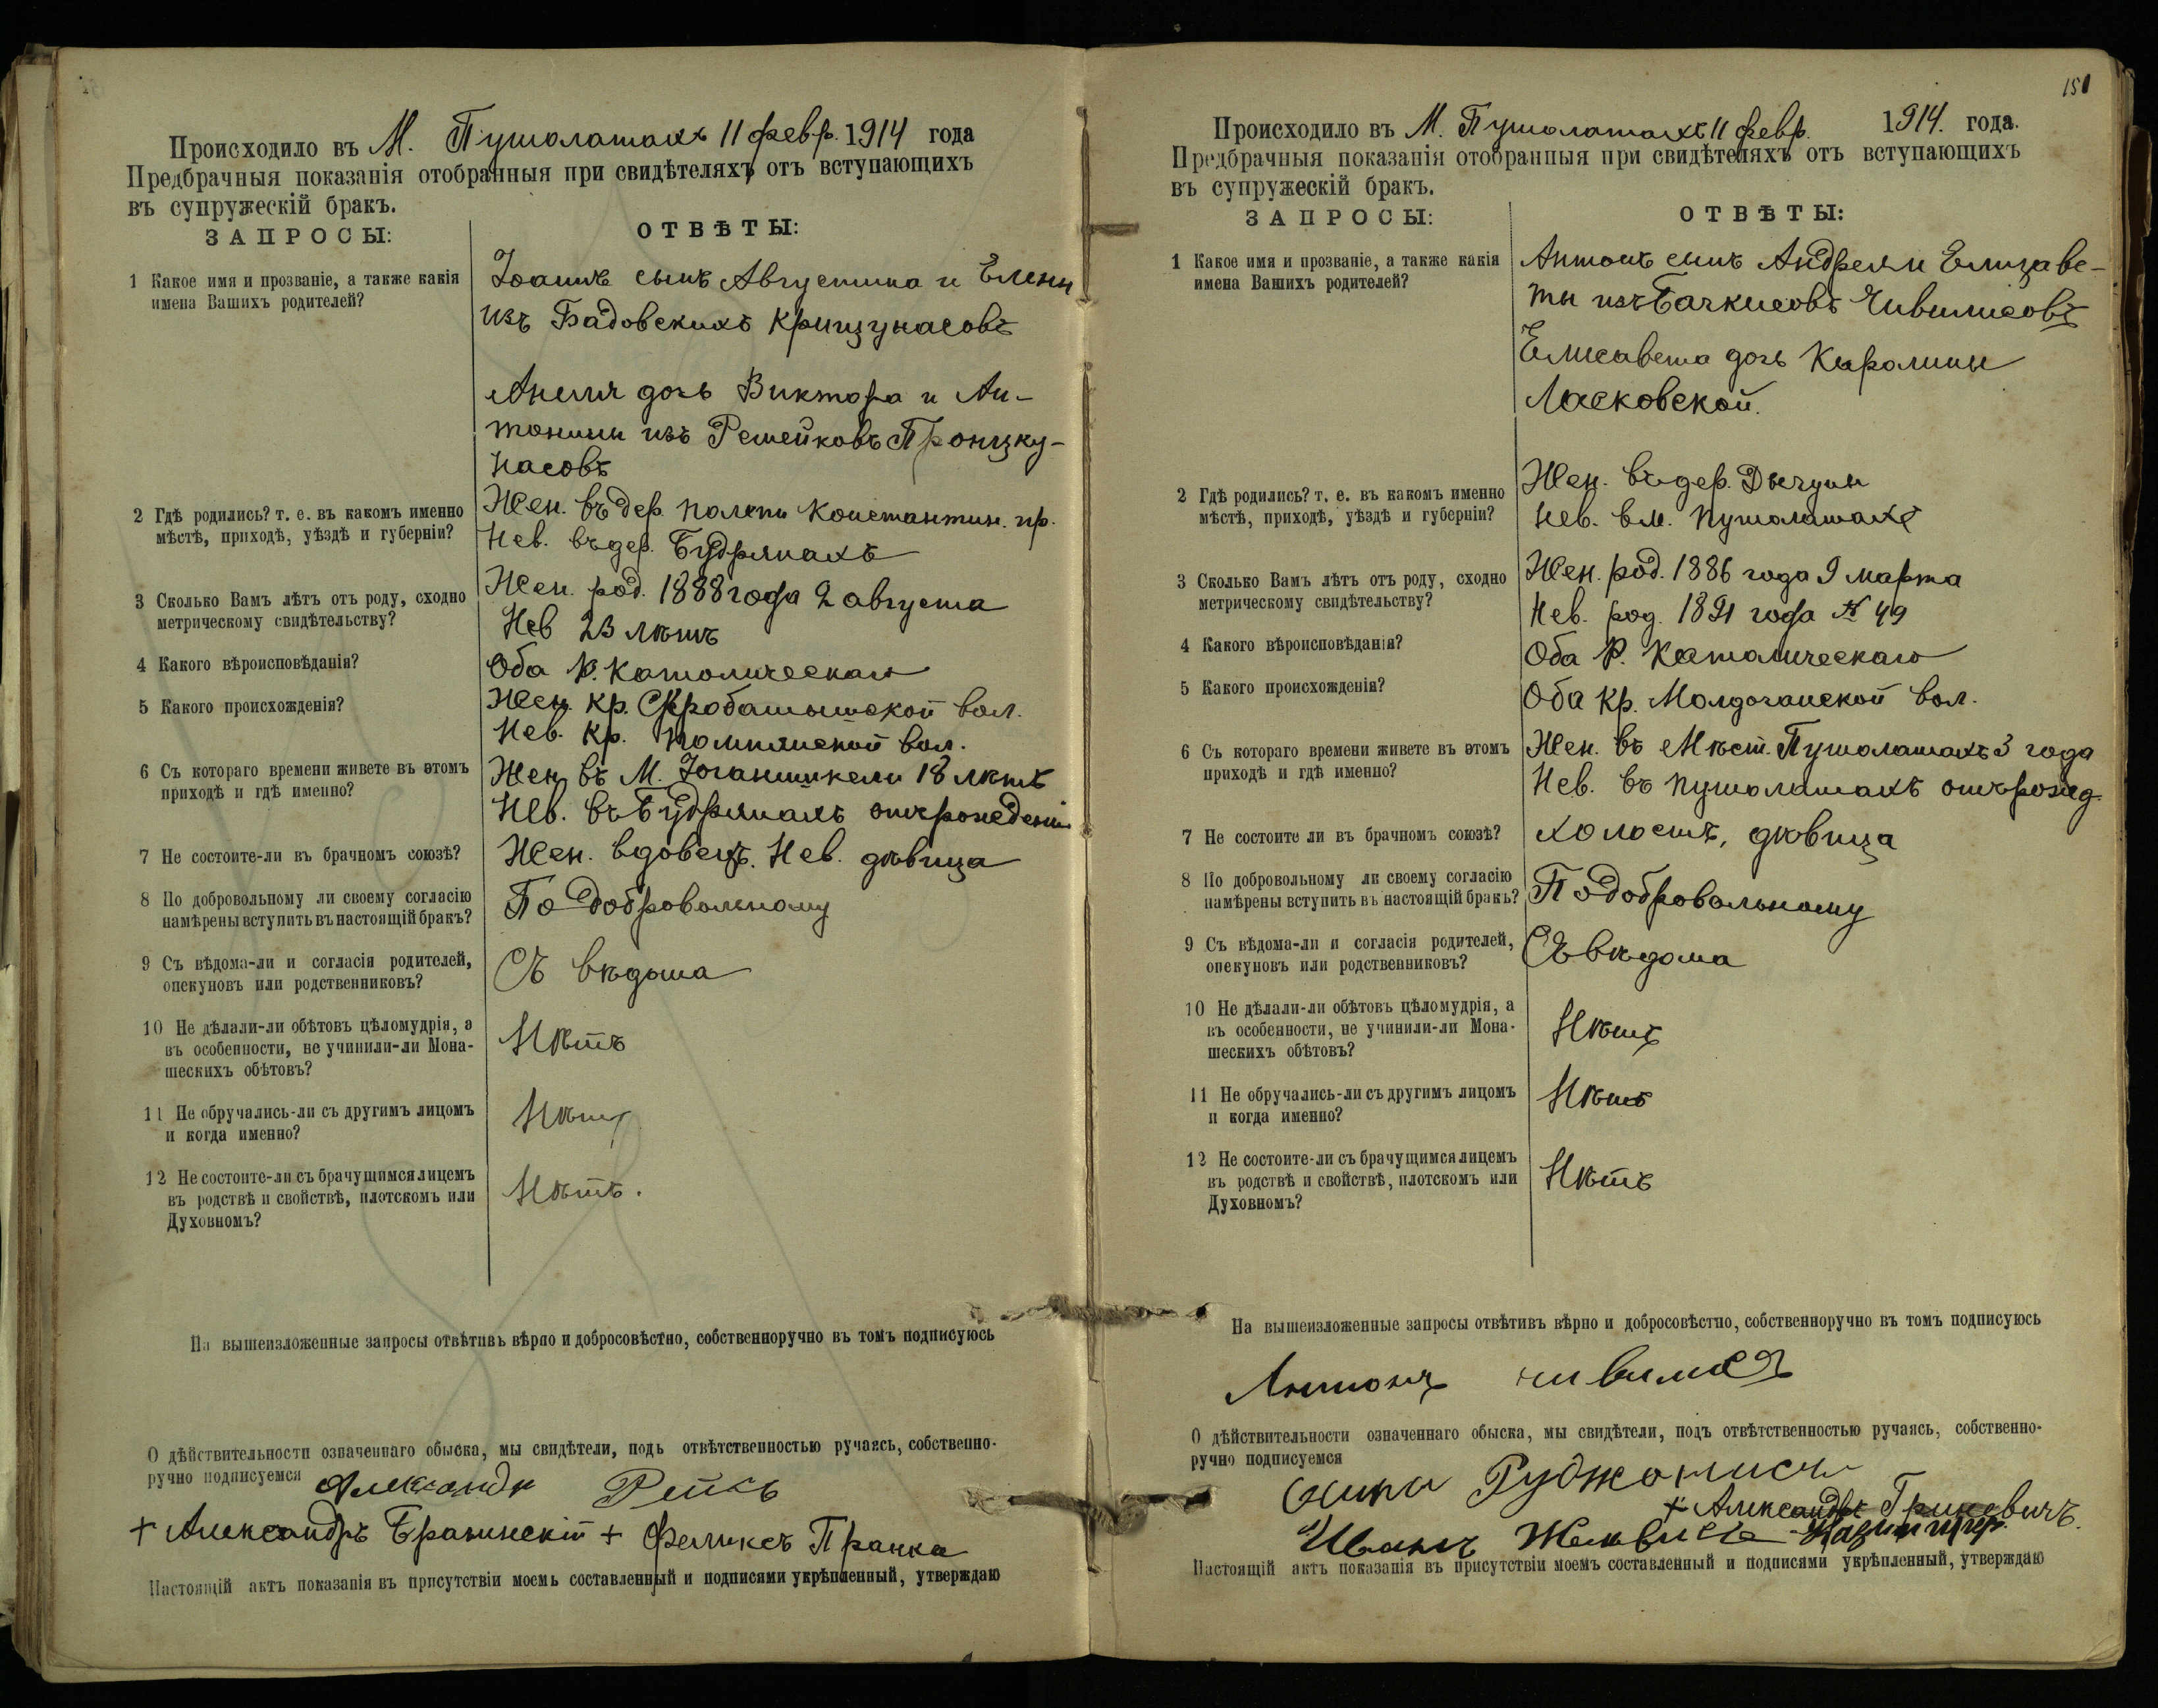 Происходило въ М. Пушолатахъ 11 февр. 1914 года
Предбрачныя показанія отобранныя при свидѣтеляхъ отъ вступающихъ
въ супружескій бракъ.
ЗАПРОСЫ:
ОТВѢТЫ:
1 Какое имя и прозваніе, а также какія
имена Вашихъ родителей?
Іоаннъ сынъ Августина и Елены
изъ Бадовскихъ Крищунасовъ
Анеля дочь Виктора и Ан-
тонины изъ Ремейковъ Пронцку-
насовъ
2 Гдѣ родились? т. е. въ какомъ именно
мѣстѣ, приходѣ, уѣздѣ и губерніи?
Жен. въ дер. Константин. пр.
Нев. въ дер. Будряпахъ
3 Сколько Вамъ лѣтъ отъ роду, сходно
метрическому свидѣтельству?
Жен. род. 1888 года 2 августа
Нев 23 лѣтъ
4 Какого вѣроисповѣданія?
Оба Р. Католическаго
5 Какого происхожденія?
Жен. кр. Скробатышской вол.
Нев. кр. Помпянской вол.
6 Съ котораго времени живете въ этомъ
приходѣ и гдѣ именно?
Жен. въ М. Іоганишкели 18 лѣтъ
Нев. въ Будряпахъ отъ рожденія
7 Не состоите-ли въ брачномъ союзѣ?
Жен. вдовецъ. Нев. дѣвица
8 По добровольному ли своему согласію
намѣрены вступить въ настоящій бракъ?
По добровольному
9 Съ вѣдома-ли и согласія родителей,
опекуновъ или родственниковъ?
Съ вѣдома
10 Не дѣлали-ли обѣтовъ цѣломудрія, а
въ особенности, не учинили-ли Мона-
шескихъ обѣтовъ?
Нѣтъ
11 Не обручались-ли съ другимъ лицомъ
и когда именно?
Нѣтъ
12 Не состоите-ли съ брачущимся лицемъ
въ родствѣ и свойствѣ, плотскомъ или
Духовномъ?
Нѣтъ.
На вышеизложенные запросы отвѣтивъ вѣрно и добросовѣстно, собственноручно въ томъ подписуюсь
О дѣйствительности означеннаго обыска, мы свидѣтели, подъ отвѣтственностью ручаясь, собственно-
ручно подписуемся Александр
+ Александръ Бразинскій + Феликсъ Пранка
Настоящій актъ показанія въ присутствіи моемъ составленный и подписями укрѣпленный, утверждаю
151
Происходило въ М. Пушолатахъ 11 февр. 1914. года.
Предбрачныя показанія отобранныя при свидѣтеляхъ отъ вступающихъ
въ супружескій бракъ.
ЗАПРОСЫ:
ОТВѢТЫ:
1 Какое имя и прозваніе, а также какія
имена Вашихъ родителей?
Антонъ сынъ Андрея и Елизаве-
ты изъ Бачкисовъ Чивилисовъ
Елисавета дочь Каролины
Ласковской.
2 Гдѣ родились? т. е. въ какомъ именно
мѣстѣ, приходѣ, уѣздѣ и губерніи?
Жен. въ дер. Дычуны
Нев. в м. Пушолатахъ
3 Сколько Вамъ лѣтъ отъ роду, сходно
метрическому свидѣтельству?
Жен. род. 1886 года 9 марта
Нев. род. 1891 года № 49
4 Какого вѣроисповѣданія?
Оба Р. Католическаго
5 Какого происхожденія?
Оба кр. Молдочанской вол.
6 Съ котораго времени живете въ этомъ
приходѣ и гдѣ именно?
Жен. въ Мѣст. Пушолатахъ 3 года
Нев. въ Пушолатахъ отъ рожд.
7 Не состоите ли въ брачномъ союзѣ?
Холостъ, дѣвица
8 По добровольному ли своему согласію
намѣрены вступить въ настоящій бракъ?
По добровольному
9 Съ вѣдома-ли и согласія родителей,
опекуновъ или родственниковъ?
Съ вѣдома
10 Не дѣлали-ли обѣтовъ цѣломудрія, а
въ особенности, не учинили-ли Мона-
шескихъ обѣтовъ?
Нѣтъ
11 Не обручались-ли съ другимъ лицомъ
и когда именно?
Нѣтъ
12 Не состоите-ли съ брачущимся лицемъ
въ родствѣ и свойствѣ, плотскомъ или
Духовномъ?
Нѣтъ
На вышеизложенные запросы отвѣтивъ вѣрно и добросовѣстно, собственноручно въ томъ подписуюсь
Антонъ чивилісъ
О дѣйствительности означеннаго обыска, мы свидѣтели, подъ отвѣтственностью ручаясь, собственно-
ручно подписуемся
+ Александръ Гриневичъ.
Иванъ
Настоящій актъ показанія въ присутствіи моемъ составленный и подписями укрѣпленный, утверждаю